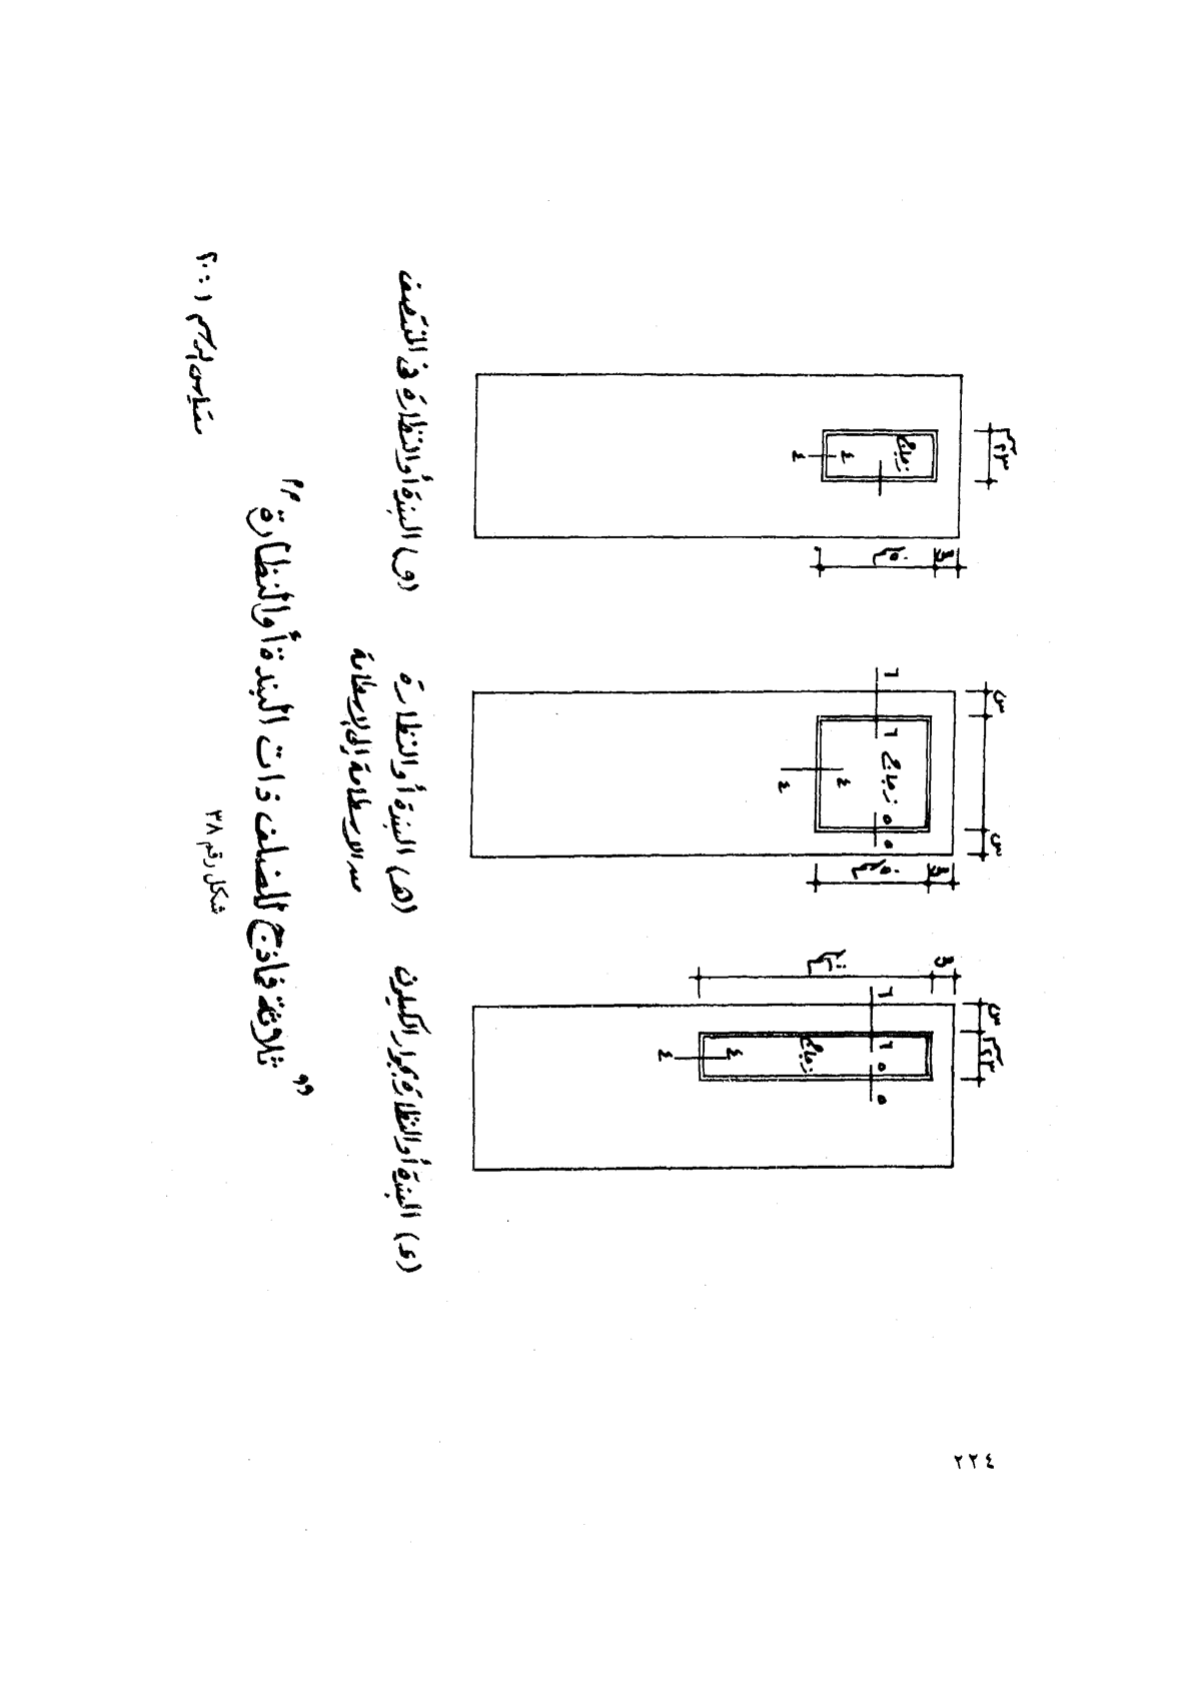 س
س
س
ع
ع
ع
٢٣
زجاج
زجاج
زجاج
٤
٤
٤
٤
٤
٤
٥
٥
٥
٥
٦
٦
٦
٦
(د) البندة أو النظارة بجوار الكيلون
(هـ) البندة أو النظارة
من الاسطامة إلى الاسطامة
(و) البندة أو النظارة فى المنتصف
" ثلاثة نماذج للضلف ذات البندة أو النظارة "
شكل رقم ٣٨
مقياس الرسم ١ : ٢٠
٢٢٤